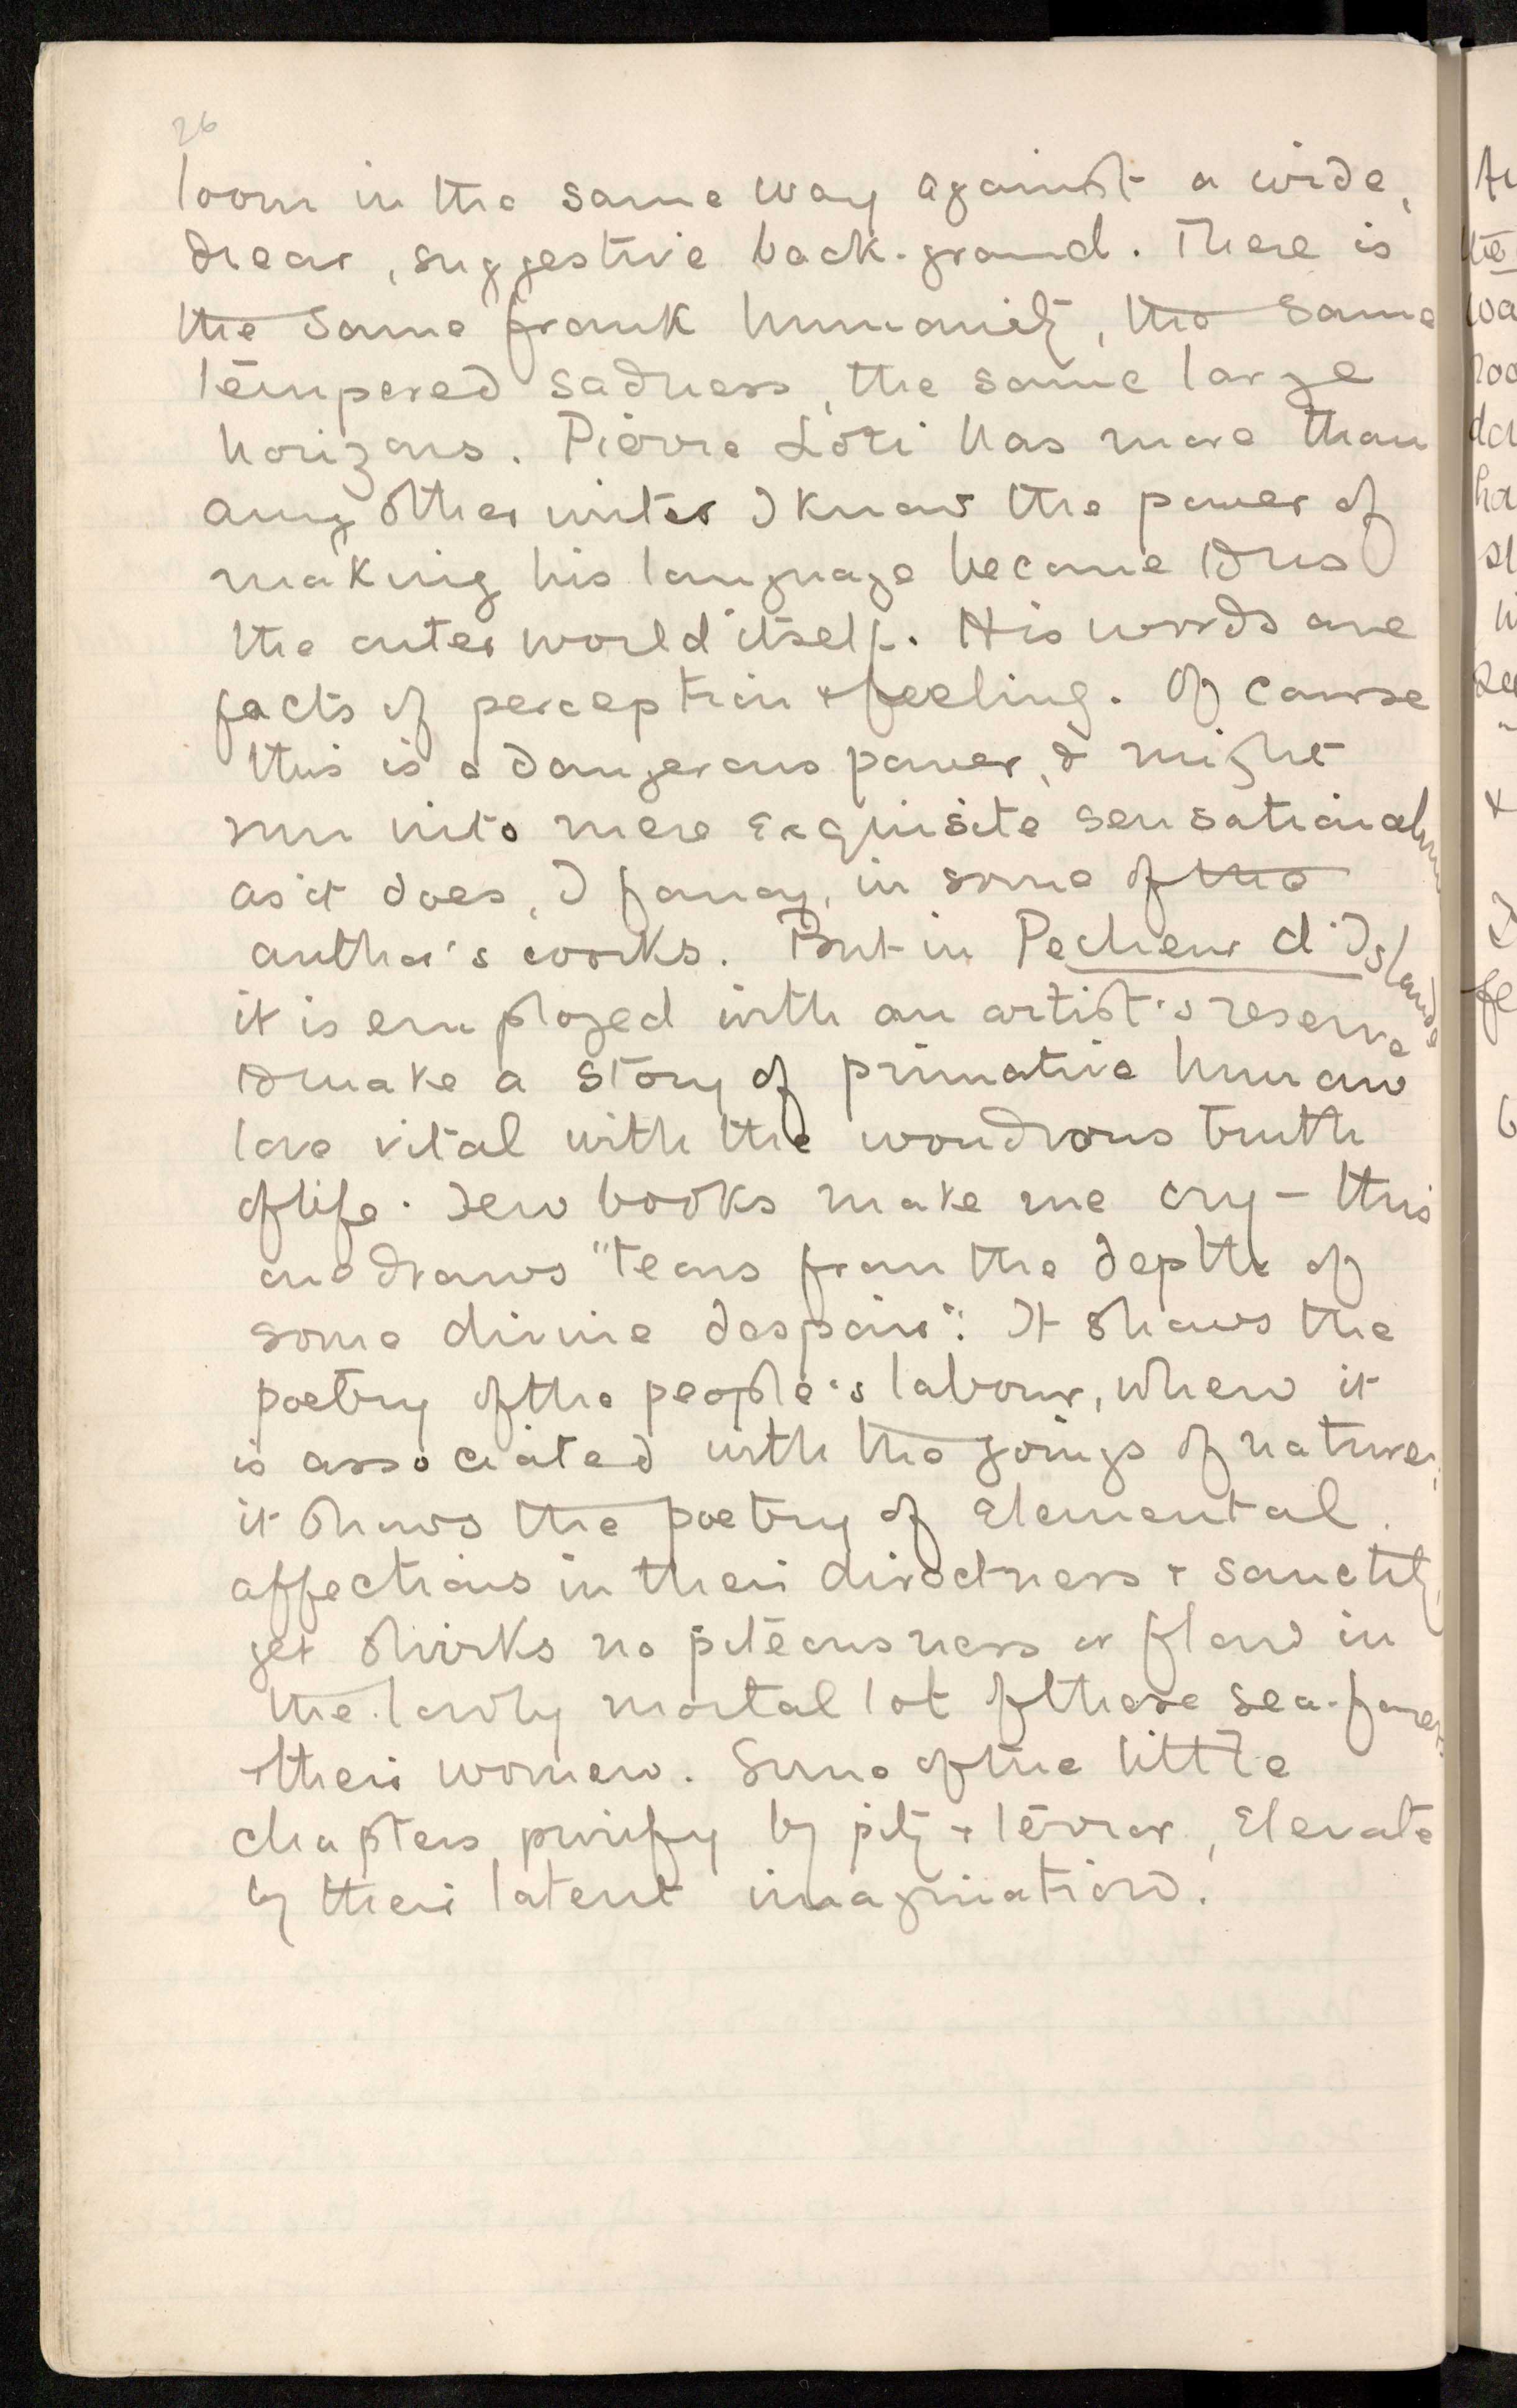 26
loom in the same way against a wide,
drear, suggestive back-ground. There is
the same frank humanity, the same
tempered sadness, the same large
horizons. Pierre Loti has more than
any other writer I know the power of
making his language become to us
the outer world itself. His words are
facts of perception & feeling. Of course
this is a dangerous power, & might
run into mere exquisite sensationalism
as it does, I fancy, in some of the
author's works. But in Pecheur d'Islande
it is employed with an artist's reserve
to make a story of primative human
love vital with the wondrous truth
of life. Few books make me cry – this
one draws "tears from the depth of
some divine despair". It shows the
poetry of the people's labour, when it
is associated with the goings of nature,
it shows the poetry of elemental
affections in their directness & sanctity,
yet shirks no piteousness or flaw in
the lowly mortal lot of these sea-farers
& their women. Some of the little
chapters purify by pity & terror, elevate
by their latent imagination.